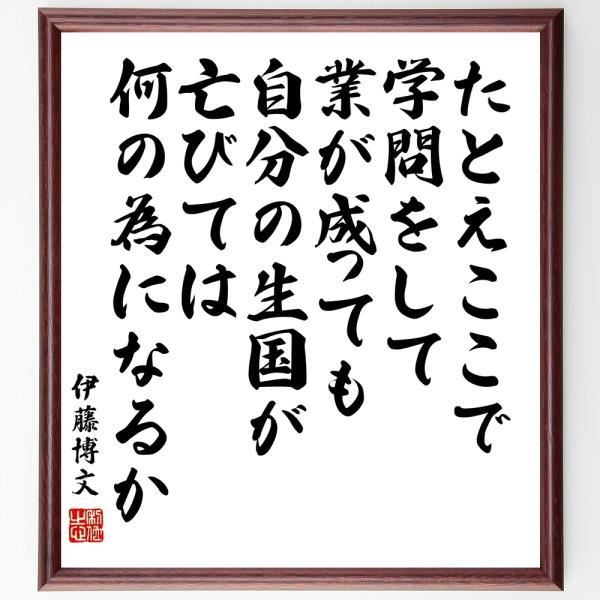 たとえここで
学問をして
業が成っても
自分の生国が
亡びては
何の為になるか
伊藤博文